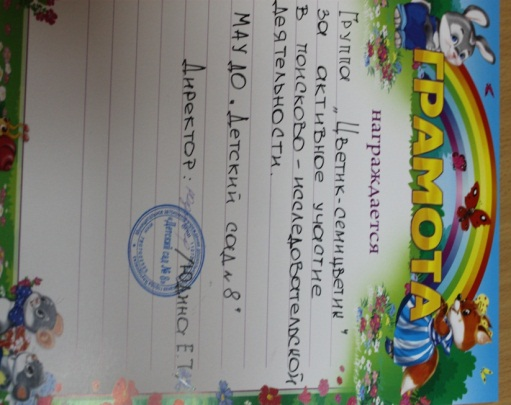 ГРАМОТА
награждается
Группа „Цветик-семицветик"
за активное участие
в поисково-исследовательской
деятельности.
МАУ ДО „Детский сад № 8"
Директор: Юдина Е.
Детский сад № 8